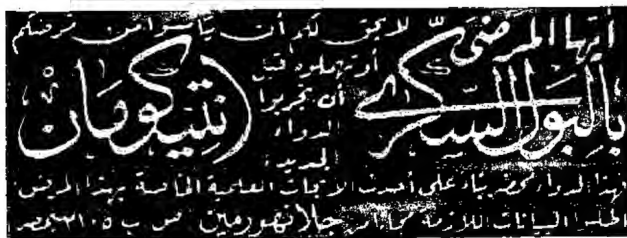 أيها المرضى
بالبول السكري
لا يحق لكم أن يأسوا من مرضكم
أو تهملوه قبل
أن تجربوا
الدواء
الجديد
انتيكومان
فهذا الدواء محضر بناء على أحدث الأبحاث العلمية الخاصة بهذا المرض
اطلبوا البيانات اللازمة من جلانهورمين ص ب ٢١٠٥ بمصر